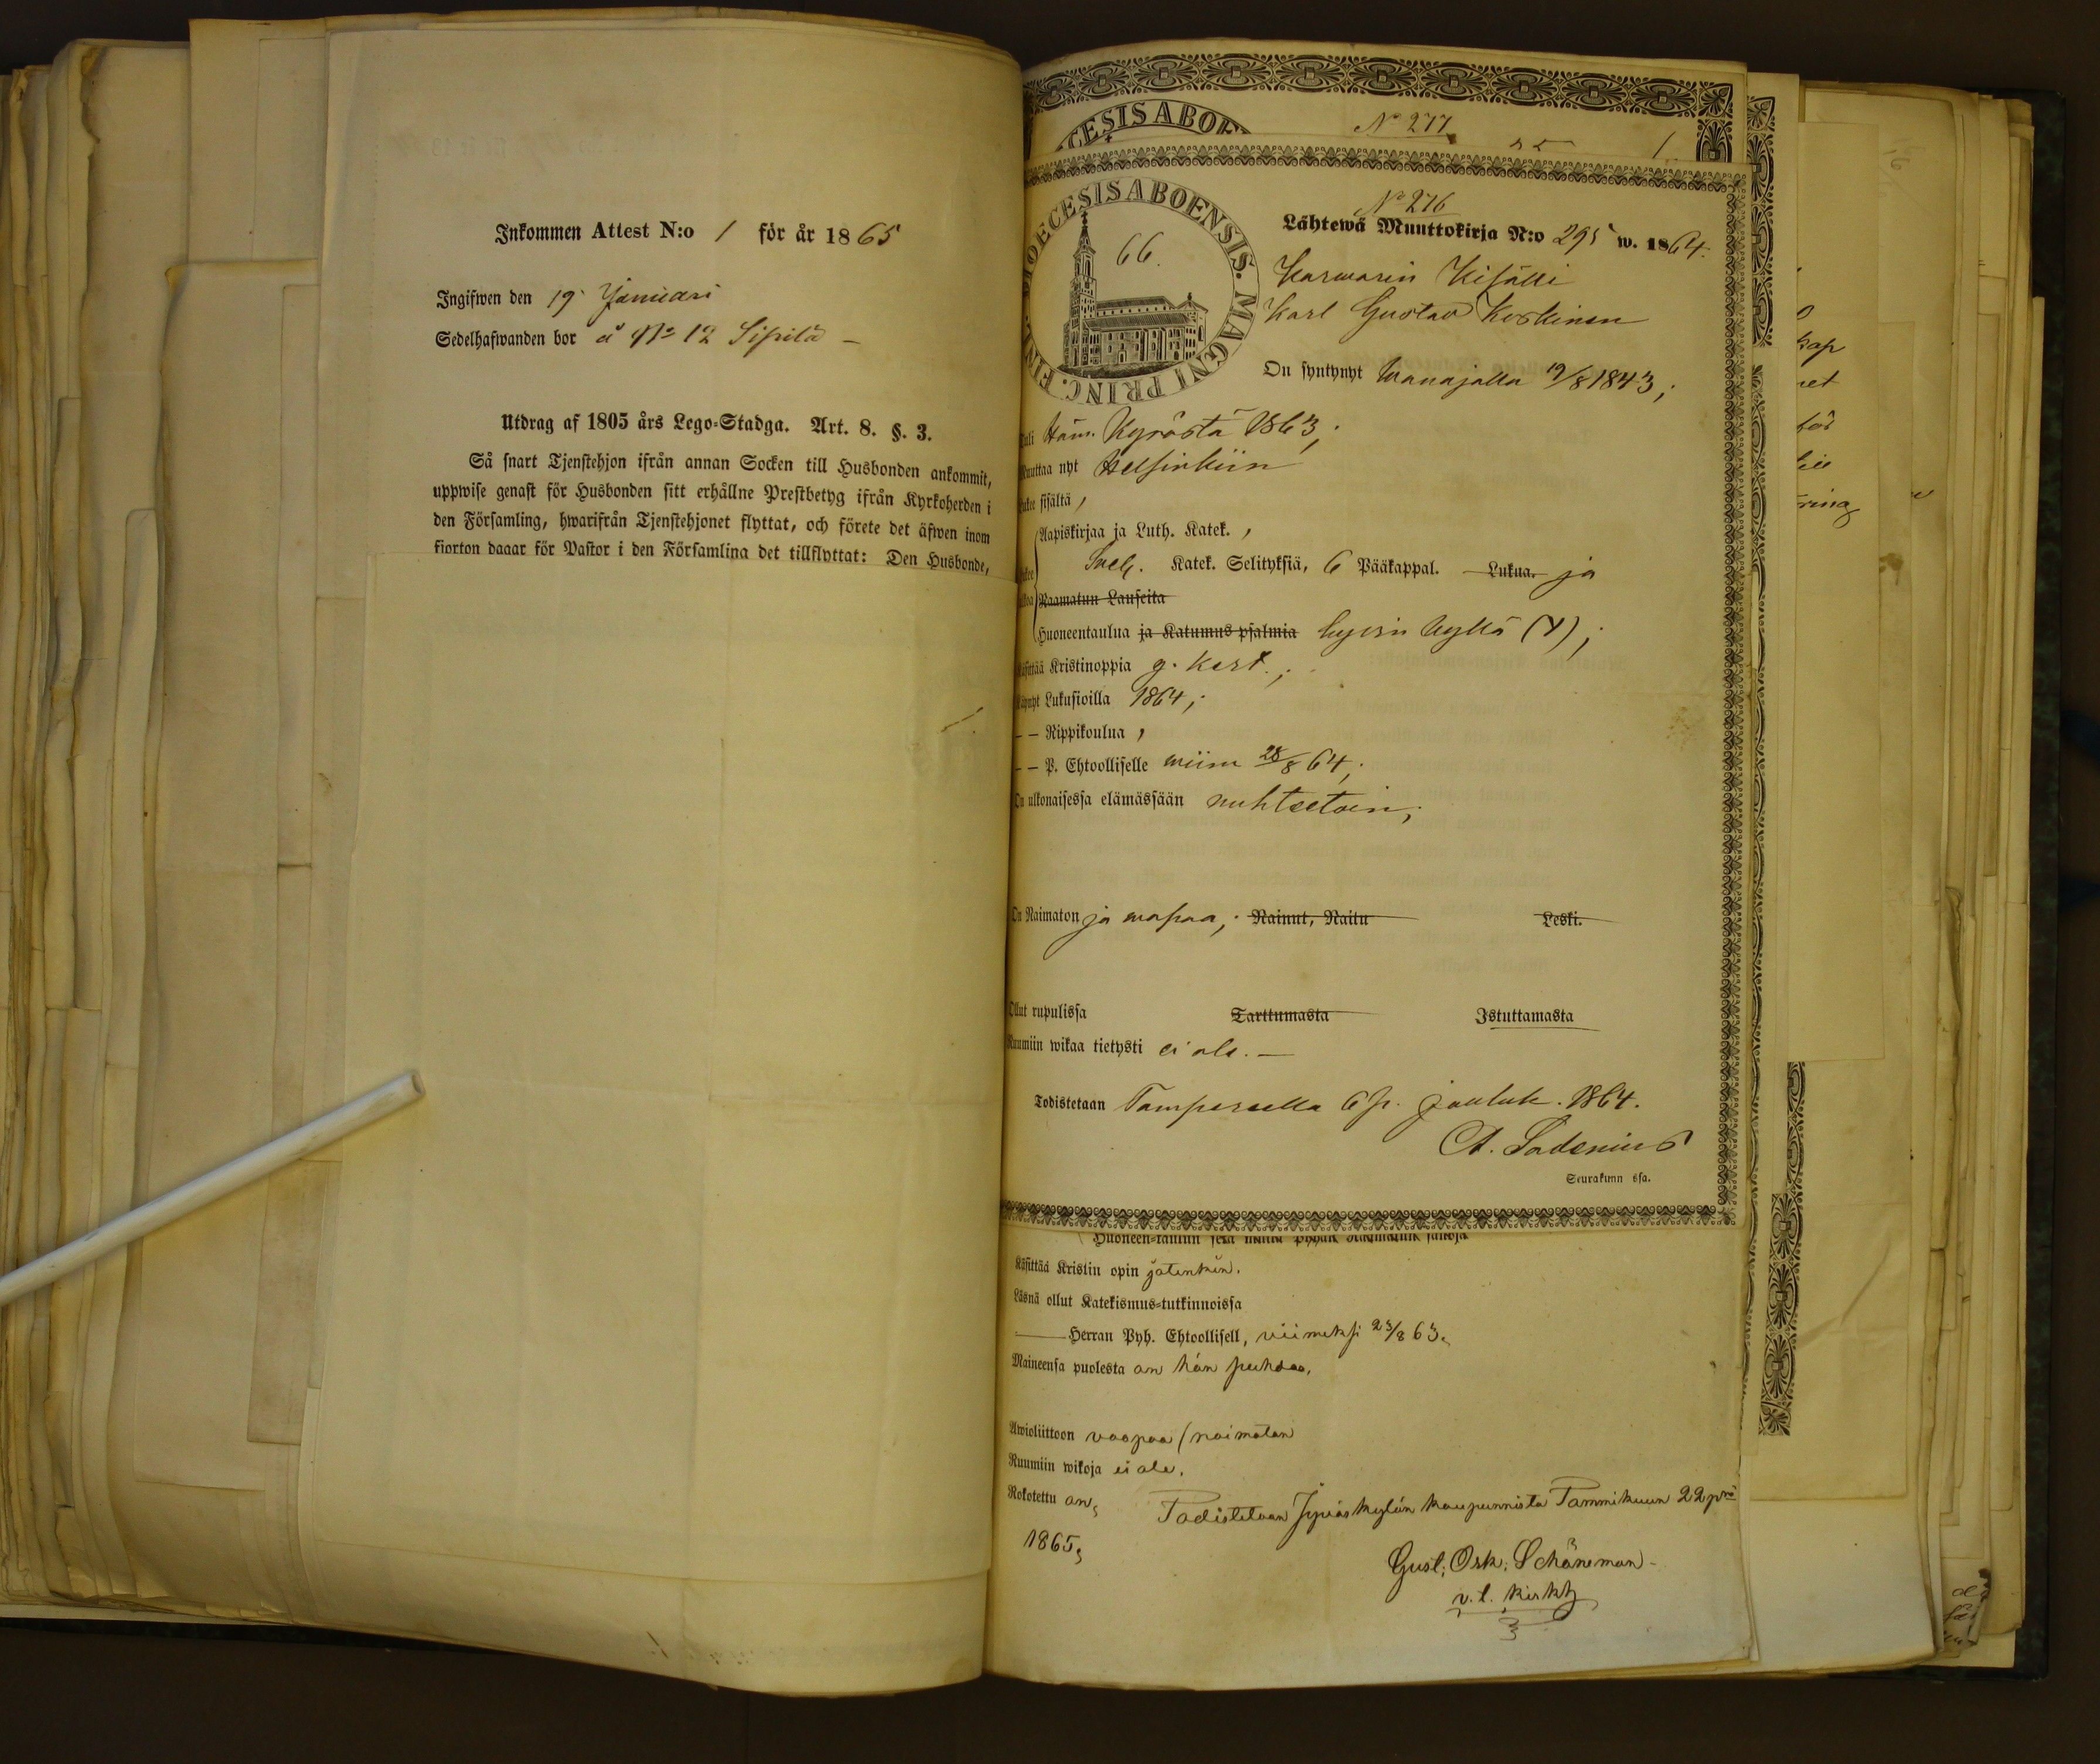 Inkommen Attest N:o 1 för år 1865
Ingifwen den 19 Januari
Sedelhafwanden bor å No 12 Sipilä –
Utdrag af 1805 års Lego-Stadga. Art. 8. §. 3.
Så snart Tjenstehjon ifrån annan Socken till Husbonden ankommit,
uppwise genast för Husbonden sitt erhållne Prestbetyg ifrån Kyrkoherden i
den Församling, hwarifrån Tjenstehjonet flyttat, och förete det äfwen inom
fjorton dagar för Pastor i den Församling det tillflyttat: Den Husbonde,
CESIS ABOE
No 277
No 276
DIOECESIS ABOENSIS. MAGNI PRINC. FINL.
66.
Lähtewä Muuttokirja N:o 295 w. 1864.
Karwarin Kisälli
Karl Gustav Koskinen
On syntynyt Wanajalla 19/8 1843;
Tuli Häm. Kyröstä 1863;
Muuttaa nyt Helsinkiin
Lukee sisältä,
Aapiskirjaa ja Luth. Katek.,
Sveb. Katek. Selityksiä, 6 Pääkappal. Lukua. ja
Raamatun Lauseita
Huoneentaulua ja Katumus psalmia hyvin kyllä (Y);
Käsittää Kristinoppia g. kart.;
Käynyt Lukusioilla 1864;
– – Rippikoulua,
– – P. Ehtoolliselle wiim 28/8 64;
On ulkonaisessa elämässään nuhteetoin;
On Naimaton ja wapaa; Nainut, Naitu Leski.
Ollut rupulissa Tarttumasta Istuttamasta
Ruumiin wikaa tietysti ei ole. –
Todistetaan Tampereella 6 p. jouluk. 1864.
A. Sadenius
Seurakunn ssa.
Huoneen-taulun sekä muita Pyhän Raamatun sanoja
Käsittää Kristin opin jotenkin.
Läsnä ollut Katekismus-tutkinnoissa
Herran Pyh. Ehtoollisell, viimeksi 23/8 63.
Maineensa puolesta on hän puhdas.
Awioliittoon vaapaa / naimaton
Ruumiin wikoja ei ole.
Rokotettu on, Todistetaan Jyväskylän kaupunnista Tammikuun 22 pnä
1865,
Gust; Osk; Schöneman –
v. t. kirkh